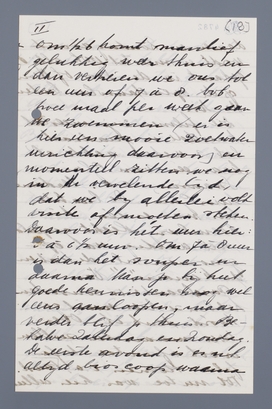 II
(18)
om ½6 komt manlief
gelukkig weer thuis en
dan verkleen we ons tot
een uur of 7 à 8. ook
twee maal per week gaan
we zwemmen (er is
hier een mooie zoetwater
inrichting daarvoor) en
momenteel zitten we nog
in de vervelende tijd,
dat we bij allerlei volk
visite af moeten steken.
Daarvoor is het uur hier:
à uur. Om 8 uur
is dan het souper en
daarna kan je bij heel
goede kennissen nog wel
eens aanloopen, maar
verder blijf je thuis. Be-
halve Zaterdag en Zondag.
De eerste avond is er nl
altijd bioscoop waarna